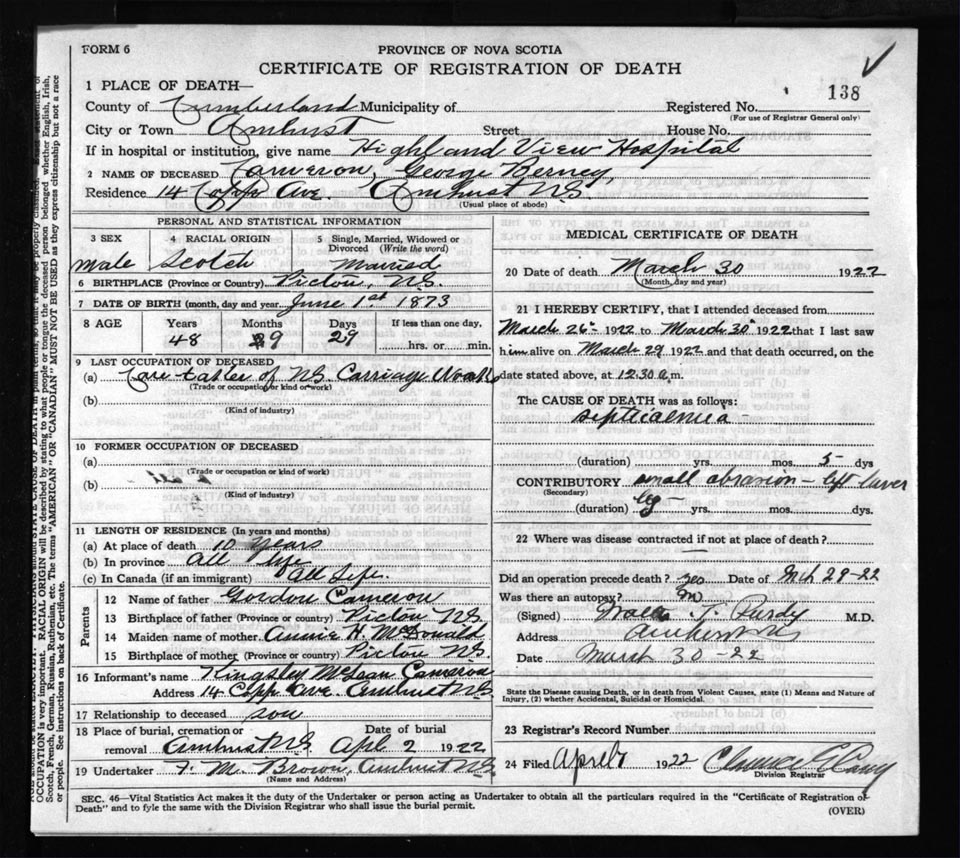 FORM 6
PROVINCE OF NOVA SCOTIA
CERTIFICATE OF REGISTRATION OF DEATH
138
1 PLACE OF DEATH—
County of Cumberland Municipality of Registered No.
(For use of Registrar General only)
City or Town Amherst Street House No.
If in hospital or institution, give name Highland View Hospital
2 NAME OF DECEASED Cameron, George Berney,
Residence 14 Copp Ave Amherst N.S.
(Usual place of abode)
PERSONAL AND STATISTICAL INFORMATION
3 SEX 4 RACIAL ORIGIN 5 Single, Married, Widowed or Divorced (Write the word)
Male Scotch Married
6 BIRTHPLACE (Province or Country) Pictou, N.S.
7 DATE OF BIRTH (month, day and year) June 1st 1873
8 AGE Years Months Days If less than one day,
48 9 29 hrs. or min.
9 LAST OCCUPATION OF DECEASED
(a) Care taker of N.S. Carriage Works
(Trade or occupation or kind of work)
(b)
(Kind of industry)
10 FORMER OCCUPATION OF DECEASED
(a)
(Trade or occupation or kind of work)
(b)
(Kind of industry)
11 LENGTH OF RESIDENCE (In years and months)
(a) At place of death 10 Years
(b) In province All life
(c) In Canada (if an immigrant) All Life.
Parents
12 Name of father Gordon Cameron
13 Birthplace of father (Province or country) Pictou N.S.
14 Maiden name of mother Annie H. McDonald
15 Birthplace of mother (Province or Country) Pictou N.S.
16 Informant's name Kingsley McLean Cameron
Address 14 Copp Ave. Amherst N.S.
17 Relationship to deceased son
18 Place of burial, cremation or removal Date of burial
Amherst N.S. Apl 2 1922
19 Undertaker F. M. Brown, Amherst N.S.
(Name and Address)
MEDICAL CERTIFICATE OF DEATH
20 Date of death March 30 1922
(Month, day and year)
21 I HEREBY CERTIFY, that I attended deceased from
March 26th 1922 to March 30th 1922 that I last saw
him alive on March 29 1922 and that death occurred, on the
date stated above, at 12.30 a.m.
The CAUSE OF DEATH was as follows:
septicaemia -
(duration) yrs. mos. 5 dys
CONTRIBUTORY small abrasion - left lower
(Secondary)
(duration) leg - yrs. mos. dys.
22 Where was disease contracted if not at place of death?
Did an operation precede death? yes Date of Mch 29-22
Was there an autopsy? no
(Signed) T. Purdy M.D.
Address Amherst N.S.
Date March 30 - 22
State the Disease causing Death, or in death from Violent Causes, state (1) Means and Nature of
Injury, (2) whether Accidental, Suicidal or Homicidal.
23 Registrar's Record Number
24 Filed April 7 1922
Division Registrar
SEC. 46—Vital Statistics Act makes it the duty of the Undertaker or person acting as Undertaker to obtain all the particulars required in the "Certificate of Registration of
Death" and to fyle the same with the Division Registrar who shall issue the burial permit.
(OVER)
OCCUPATION is very important. RACIAL ORIGIN will be described by stating to what people or tongue the deceased person belonged whether English, Irish,
Scotch, French, German, Russian, Ruthenian, etc. The terms "AMERICAN" OR "CANADIAN" MUST NOT BE USED as they express citizenship but not a race
or people. See instructions on back of Certificate.